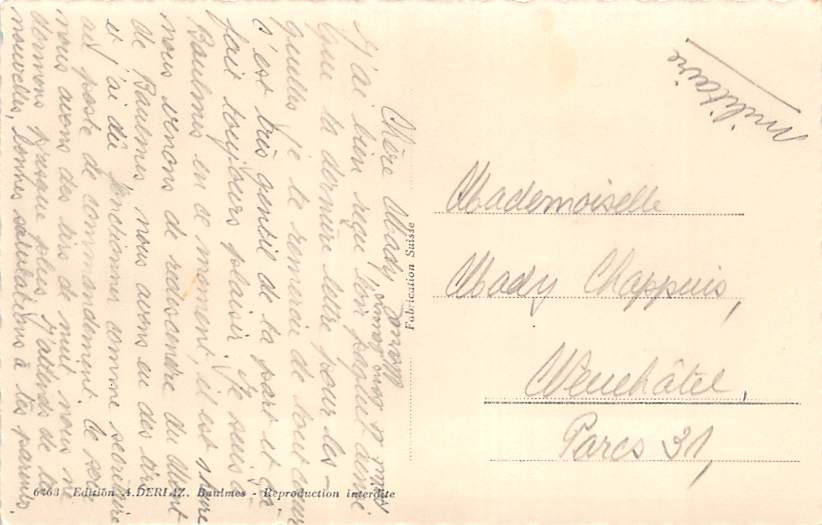 Chère Mady,
J'ai bien reçu ton paquet ainsi
que ta dernière lettre pour les-
quelles je te remercie de tout cœur
c'est très gentil de ta part et ça
fait toujours plaisir. Je suis à
Baulmes en ce moment, il est
nous venons de redescendre du Mont
de Baulmes nous avons eu des tirs
et j'ai dû fonctionner comme secrétaire
au poste de commandement. Ce soir
nous avons des tirs de nuit nous ne
dormons presque plus. J'attends de tes
nouvelles, bonnes salutations à tes parents,
et bons
militaire
Mademoiselle
Mady Chappuis,
Neuchâtel,
Parcs 31,
Fabrication Suisse
6463 Edition A. DERIAZ. Baulmes - Reproduction interdite